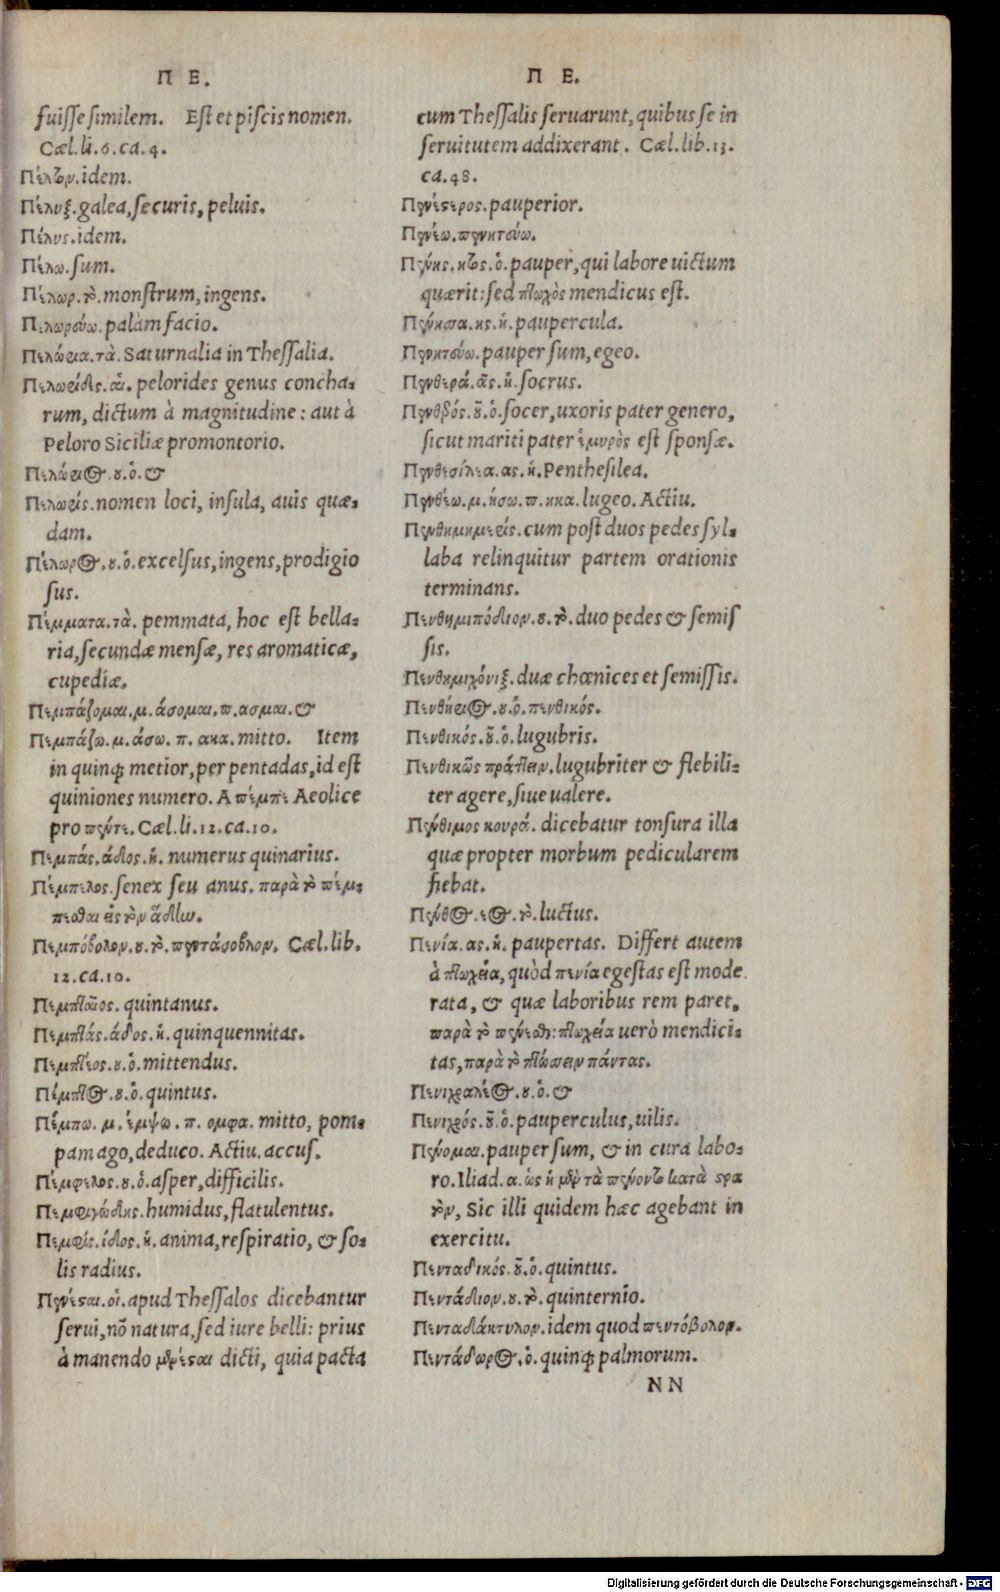 Π Ε.
fuisse similem. Est et piscis nomen.
Cæl. li. 6. ca. 4.
Πέλτον. idem.
Πέλυξ. galea, securis, peluis.
Πέλυς. idem.
Πέλω. sum.
Πέλωρ. τὸ. monstrum, ingens.
Πελωρεύω. palàm facio.
Πελώρια. τὰ. Saturnalia in Thessalia.
Πελωρίδες. αἱ. pelorides genus concha-
rum, dictum à magnitudine: aut à
Peloro Siciliæ promontorio.
Πελώριος. ου. ὁ. &
Πελωρίς. nomen loci, insula, auis quæ-
dam.
Πέλωρος. ου. ὁ. excelsus, ingens, prodigio
sus.
Πέμματα. τὰ. pemmata, hoc est bella-
ria, secundæ mensæ, res aromaticæ,
cupediæ.
Πεμπάζομαι. μ. άσομαι. π. ασμαι. &
Πεμπάζω. μ. άσω. π. ακα. mitto. Item
in quinq; metior, per pentadas, id est
quiniones numero. A πέμπε Aeolice
pro πέντε. Cæl. li. 12. ca. 10.
Πεμπάς. άδος. ἡ. numerus quinarius.
Πέμπελος. senex seu anus. παρὰ τὸ πέμ-
πεσθαι εἰς τὸν ἅδην.
Πεμπόβολον. ου. τὸ. πεντάσοβλον. Cæl. lib.
12. ca. 10.
Πεμπταῖος. quintanus.
Πεμπτάς. άδος. ἡ. quinquennitas.
Πεμπτέος. ου. ὁ. mittendus.
Πέμπτος. ου. ὁ. quintus.
Πέμπω. μ. έμψω. π. ομφα. mitto, pom-
pam ago, deduco. Actiu. accus.
Πέμφελος. ου. ὁ. asper, difficilis.
Πεμφιγώδης. humidus, flatulentus.
Πεμφίς. ίδος. ἡ. anima, respiratio, & so-
lis radius.
Πενέσται. οἱ. apud Thessalos dicebantur
serui, nõ natura, sed iure belli: prius
à manendo μενέσται dicti, quia pacta
Π Ε.
cum Thessalis seruarunt, quibus se in
seruitutem addixerant. Cæl. lib. 13.
ca. 48.
Πενέστερος. pauperior.
Πενέω. πενητεύω.
Πένης. ητος. ὁ. pauper, qui labore uictum
quærit: sed πτωχὸς mendicus est.
Πένησσα. ης. ἡ. paupercula.
Πενητεύω. pauper sum, egeo.
Πενθερά. ᾶς. ἡ. socrus.
Πενθερός. οῦ. ὁ. socer, uxoris pater genero,
sicut mariti pater ἑκυρὸς est sponsæ.
Πενθεσίλεια. ας. ἡ. Penthesilea.
Πενθέω. μ. ήσω. π. ηκα. lugeo. Actiu.
Πενθημιμερίς. cum post duos pedes syl-
laba relinquitur partem orationis
terminans.
Πενθημιπόδιον. ου. τὸ. duo pedes & semis
sis.
Πενθημιχόνιξ. duæ chœnices et semissis.
Πενθήριος. ου. ὁ. πενθικός.
Πενθικός. οῦ. ὁ. lugubris.
Πενθικῶς πράττειν. lugubriter & flebili-
ter agere, siue ualere.
Πένθιμος κουρά. dicebatur tonsura illa
quæ propter morbum pedicularem
fiebat.
Πένθος. εος. τὸ. luctus.
Πενία. ας. ἡ. paupertas. Differt autem
à πτωχεία, quòd πενία egestas est mode
rata, & quæ laboribus rem paret,
παρὰ τὸ πένεσθαι: πτωχεία uerò mendici-
tas, παρὰ τὸ πτώσσειν πάντας.
Πενιχραλέος. ου. ὁ. &
Πενιχρός. οῦ. ὁ. pauperculus, uilis.
Πένομαι. pauper sum, & in cura labo-
ro. Iliad. α. ὡς οἱ μὲν τὰ πένοντο κατὰ στρα
τὸν, Sic illi quidem hæc agebant in
exercitu.
Πενταδικός. οῦ. ὁ. quintus.
Πεντάδιον. ου. τὸ. quinternio.
Πενταδάκτυλον. idem quod πεντόβολον.
Πεντάδωρος. ὁ. quinq; palmorum.
NN
Digitalisierung gefördert durch die Deutsche Forschungsgemeinschaft - DFG